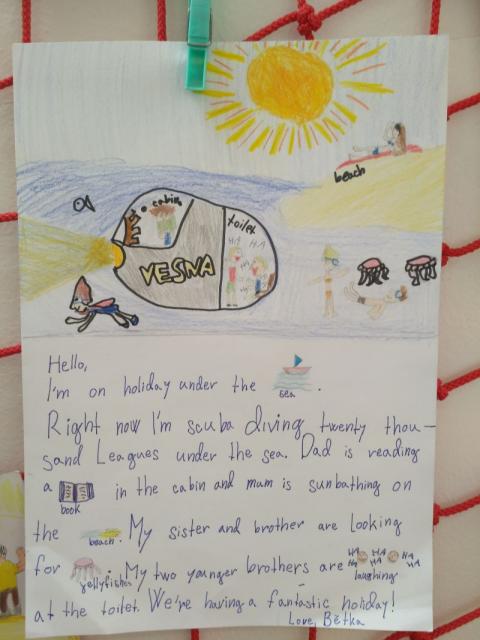 beach
cabin
toilet
HA HA
HA
HA
VESNA
Hello,
I'm on holiday under the sea.
Right now I'm scuba diving twenty thou-
sand Leagues under the sea. Dad is reading
a book in the cabin and mum is sunbathing on
the beach. My sister and brother are looking
for jellyfishes. My two younger brothers are HA HA HA HA HA HA laughing
at the toilet. We're having a fantastic holiday!
Love, Bětka